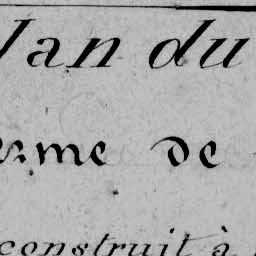 lan du
erme de
construit à